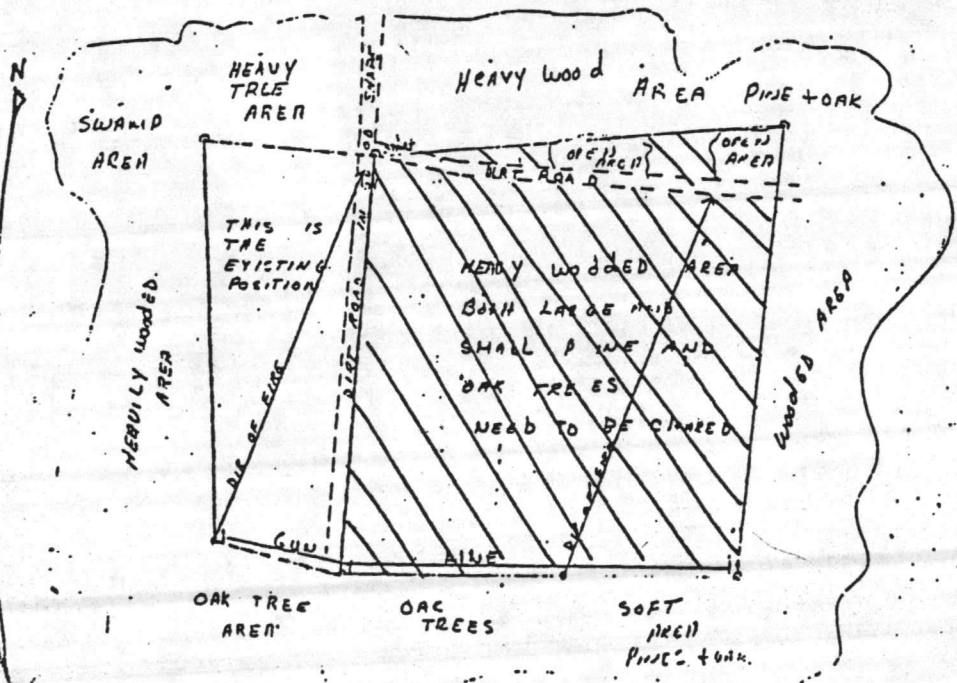 N
HEAVY
TREE
AREA
HEAVY WOOD AREA
PINE + OAK
SWAMP
AREA
OPEN
AREA
OPEN
AREA
DIRT ROAD
THIS IS
THE
EXISTING
POSITION
HEAVILY WOODED
AREA
DIR OF FIRE
DIRT ROAD IN
HEAVY WOODED AREA
BOTH LARGE AND
SMALL PINE AND
OAK TREES
NEED TO BE CLEARED
WOODED AREA
GUN LINE
OAK TREE
AREA
OAC
TREES
SOFT
AREA
PINES + OAK